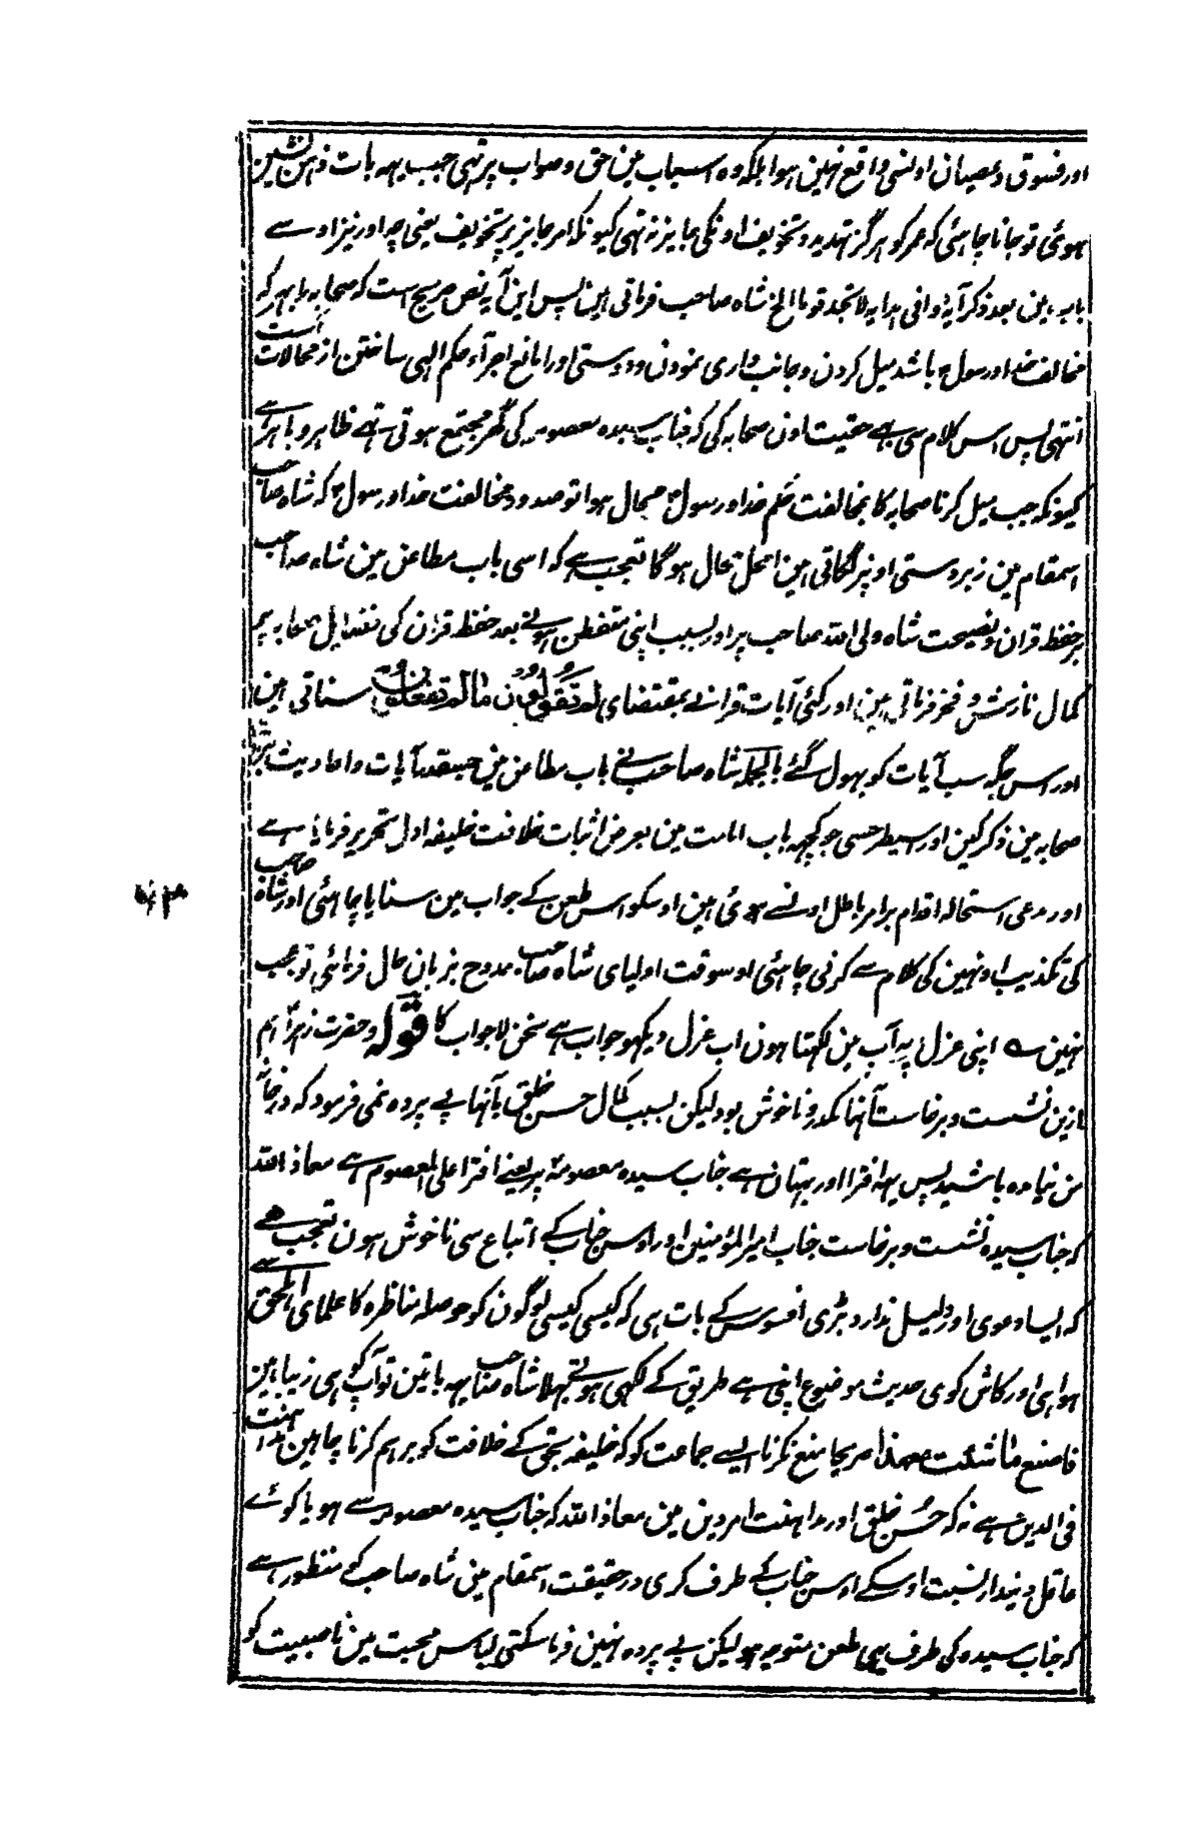 اور فسوق و عصیان اونسی واقع نہین ہوا بلکہ وہ اسباب مین حق و صواب پر تہی جب یہہ بات ذہن نشین
ہوئی تو جاننا چاہئی کہ عمر کو ہرگز تہدید و تخویف اونکی جایز نہ تہی کیونکہ امر جایز پر تخویف یعنی چہ اور نیز اوسے
باب مین بعد ذکر آیۂ وافی ہدایہ لا تجد قوما الخ شاہ صاحب فرماتی ہین پس این آیہ نص صریح است کہ صحابہ را بہر کہ
مخالف خدا و رسول باشد میل کردن و جانب داری نمودن و دوستی اورا مانع اجراء حکم الہی ساختن از محالات است
انتہی پس اس کلام سی ہے حقیت اون صحابہ کی کہ جناب سیدہ معصومہ کی گھر مجتمع ہوتی تہے ظاہر و باہر ہے
کیونکہ جب میل کرنا صحابہ کا بمخالفت حکم خدا و رسول محال ہوا تو صدور مخالفت خدا و رسول کہ شاہ صاحب
اسمقام مین زبردستی اونپر لگاتی ہین امحل محال ہوگا تعجب ہے کہ اسی باب مطاعن مین شاہ صاحب
بر حفظ قران و نصیحت شاہ ولی اللہ صاحب پر اور بسبب اپنی متفطن ہونے بعد حفظ قران کی فضایل صحابہ پر
کمال نازش و فخر فرماتی ہین اور کئی آیات قرانے بمقتضای لم تقولون ما لا تفعلون سناتی ہین
اور اس جگہ سب آیات کو بہول گئے بالجملہ شاہ صاحب نے باب مطاعن مین جسقدر آیات و احادیث
صحابہ مین ذکر کین اور اسیطرحسی جو کچہہ باب امامت مین بعرض اثبات خلافت خلیفہ اول تحریر فرمایا ہے
اور مدعی استحالہ اقدام بر امر باطل اونسے ہوئی ہین اوسکو اس طعن کے جواب مین سنایا چاہئی اور شاہ صاحب
کی تکذیب اونہین کی کلام سے کرنی چاہئی اوسوقت اولیای شاہ صاحب ممدوح بزبان حال فرمائی تو عجب
نہین ے اپنی غزل پہ آپ مین لکہتا ہون اب غزل دیکہو جواب ہے سخن لاجواب کا قولہ و حضرت زہرا ہم
ازین نشست و برخاست آنہا مکدر و ناخوش بود لیکن بسبب کمال حسن خلق بآنہا بے پردہ نمی فرمود کہ در خانۂ
من نیامدہ باشید پس یہہ افترا اور بہتان ہے جناب سیدہ معصومہ پر یعنے افترا علی المعصوم ہے معاذ اللہ
کہ جناب سیدہ نشست و برخاست جناب امیر المؤمنین اور اوس جناب کے اتباع سی ناخوش ہون تعجب ہے
کہ ایسا دعوی اور دلیل ندارد بڑی افسوس کے بات ہی کہ کیسی کیسی لوگون کو حوصلہ مناظرہ کا علمای اہل حق سے
ہوا ہی اور کاش کوی حدیث موضوع اپنی ہے طریق کے لکہی ہوتے بہلا شاہ صاحب یہہ باتین تو آپکو ہی زیبا ہین
فاصنع ما شئت معہذا مریجا منع نکرنا ایسے جماعت کو کہ خلیفہ بحق کے خلافت کو برہم کرنا چاہین مداہنت
فی الدین ہے نہ کہ حسن خلق اور مداہنت امر دین مین معاذ اللہ کہ جناب سیدہ معصومہ سے ہو یا کوئے
عاقل دیندار نسبت اوسکے اوس جناب کے طرف کری در حقیقت اسمقام مین شاہ صاحب کو منظور ہے
کہ جناب سیدہ کی طرف بہی طعن متوجہ ہو لیکن بے پردہ نہین فرما سکتی لباس محبت مین ناصبیت کو